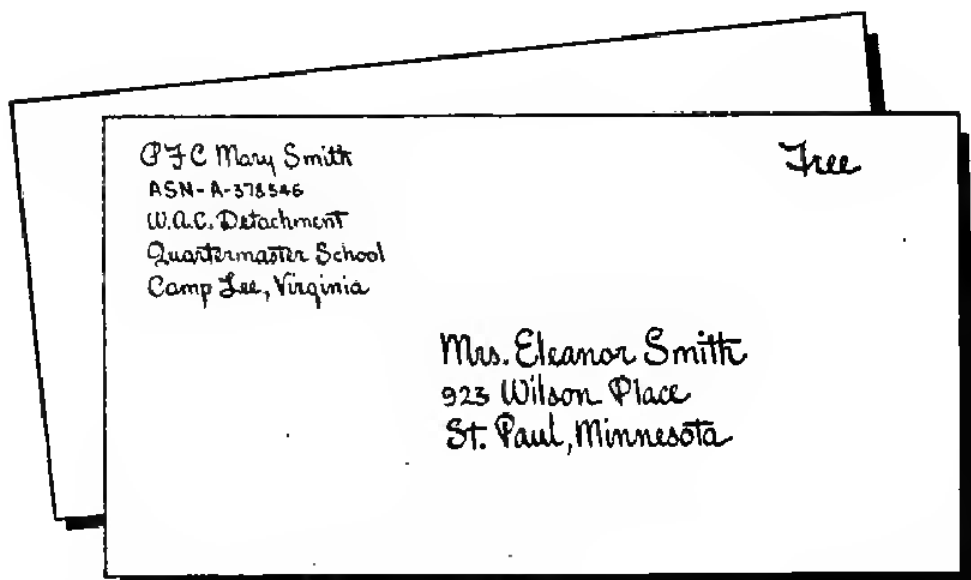 PFC Mary Smith
ASN-A-378546
W.A.C. Detachment
Quartermaster School
Camp Lee, Virginia
Free
Mrs. Eleanor Smith
923 Wilson Place
St. Paul, Minnesota